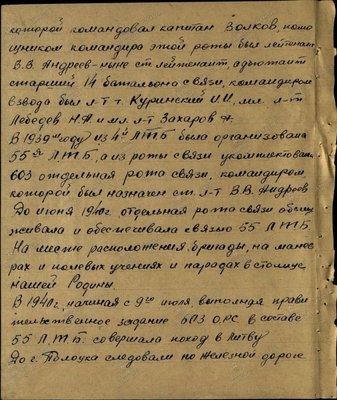 которой командовал капитан Волков, помо
щником командира этой роты был лейтенант
В.В. Андреев - ныне ст лейтенант, адъютант
старший 14 батальона связи, командиром
взвода был л-т т. Куринский И.И., мл. л-т
Лебедев Н.А и мл. л-т Захаров А.
В 1939м году из 4й ЛТБ была организована
55я ЛТБ, а из роты связи укомплектована
603 отдельная рота связи, командиром
которой был назначен ст. л-т В.В. Андреев
До июня 1940г. отдельная рота связи обслу
живала и обеспечивала связью 55 ЛТБ.
На месте расположения бригады, на манев
рах и полевых учениях и парадах в столице
нашей Родины.
В 1940г., начиная с 9го июля, выполняя прави
тельственное задание 603 ОРС в составе
55 ЛТБ. совершала поход в Литву
До г. Полоцка следовали по железной дороге